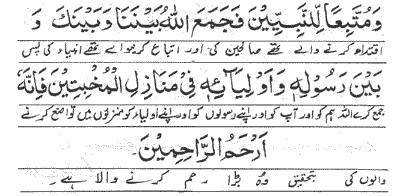 وَمُتَّبِعًا لِلنَّبِيِّيْنَ فَجَمَعَ اللّٰهُ بَيْنَنَا وَبَيْنَكَ وَ
اقتداء کرنے والے تھے صالحین کی اور اتباع کرتے تھے انبیاء کی پس
بَيْنَ رَسُوْلِهٖ وَاَوْلِيَائِهٖ فِىْ مَنَازِلِ الْمُخْبِتِيْنَ فَاِنَّهٗ
جمع کرے اللہ ہم کو اور آپ کو اور اپنے رسولوں کو اور اپنے اولیاء کو منزلوں میں تواضع کرنے
اَرْحَمُ الرَّاحِمِيْنَ۔
والوں کی بتحقیق وہ بڑا رحم کرنے والا ہے۔